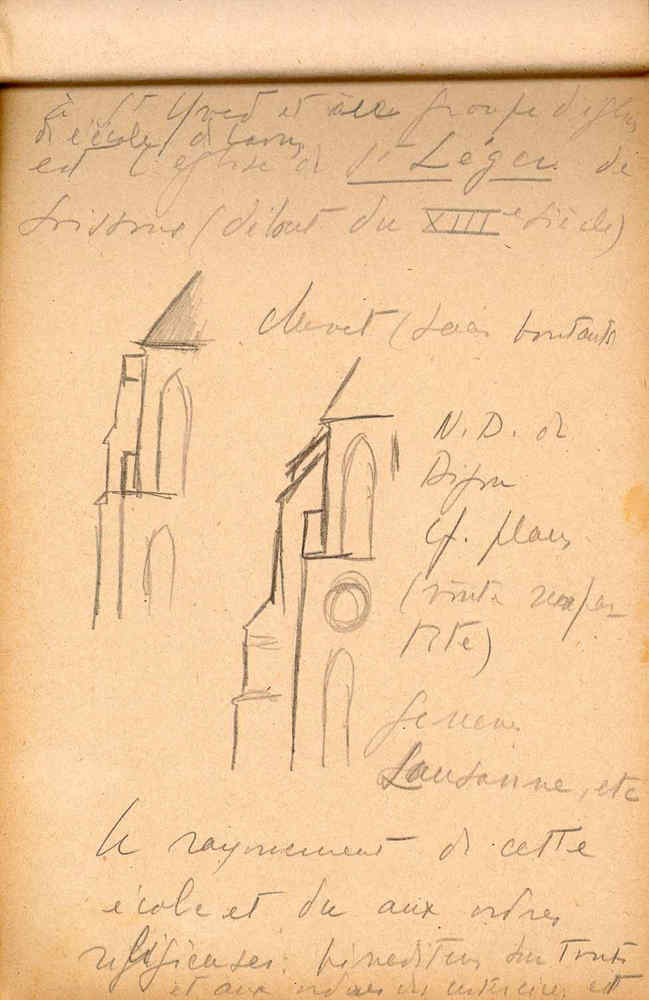 à St Yved et au groupe d'églises
de l'école de Laon
est l'église de St Léger de
Soissons (début du XIIIe siècle)
chevet (sans boutants
N. D. de
Dijon
cf. plans
(voute sexpar
tite)
Geneve
Lausanne, etc
Le rayonnement de cette
école est du aux ordres
religieuses: bénédictins surtout
et aux ordres